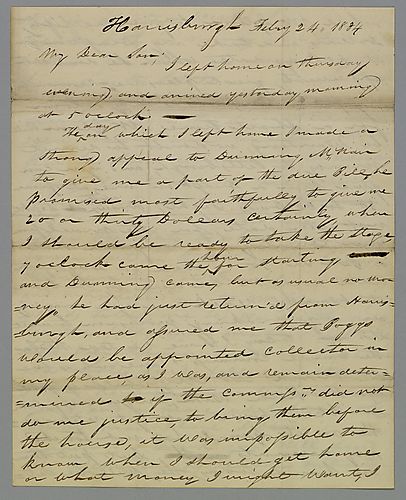 Harrisburgh Feby 24, 1834
My Dear Son,
I left home on Thursday
evening and arrived yesterday morning
at 5 oclock —
The day on which I left home I made a
strong appeal to Dunning McNair
to give me a part of the due Bill, he
promised most faithfully to give me
20 or thirty Dollars certainly, when
I should be ready to take the Stage,
7 oclock came the hour for starting —
and Dunning came, but as usual no mo-
ney, he had just return'd from Harris-
=burgh, and assured me that Foggo
would be appointed collector in
my place, as I was, and remain deter-
=mined if the Commiss.rs did not
do me justice, to bring them before
the house, it was impossible to
know when I should get home
or what money I might want, I